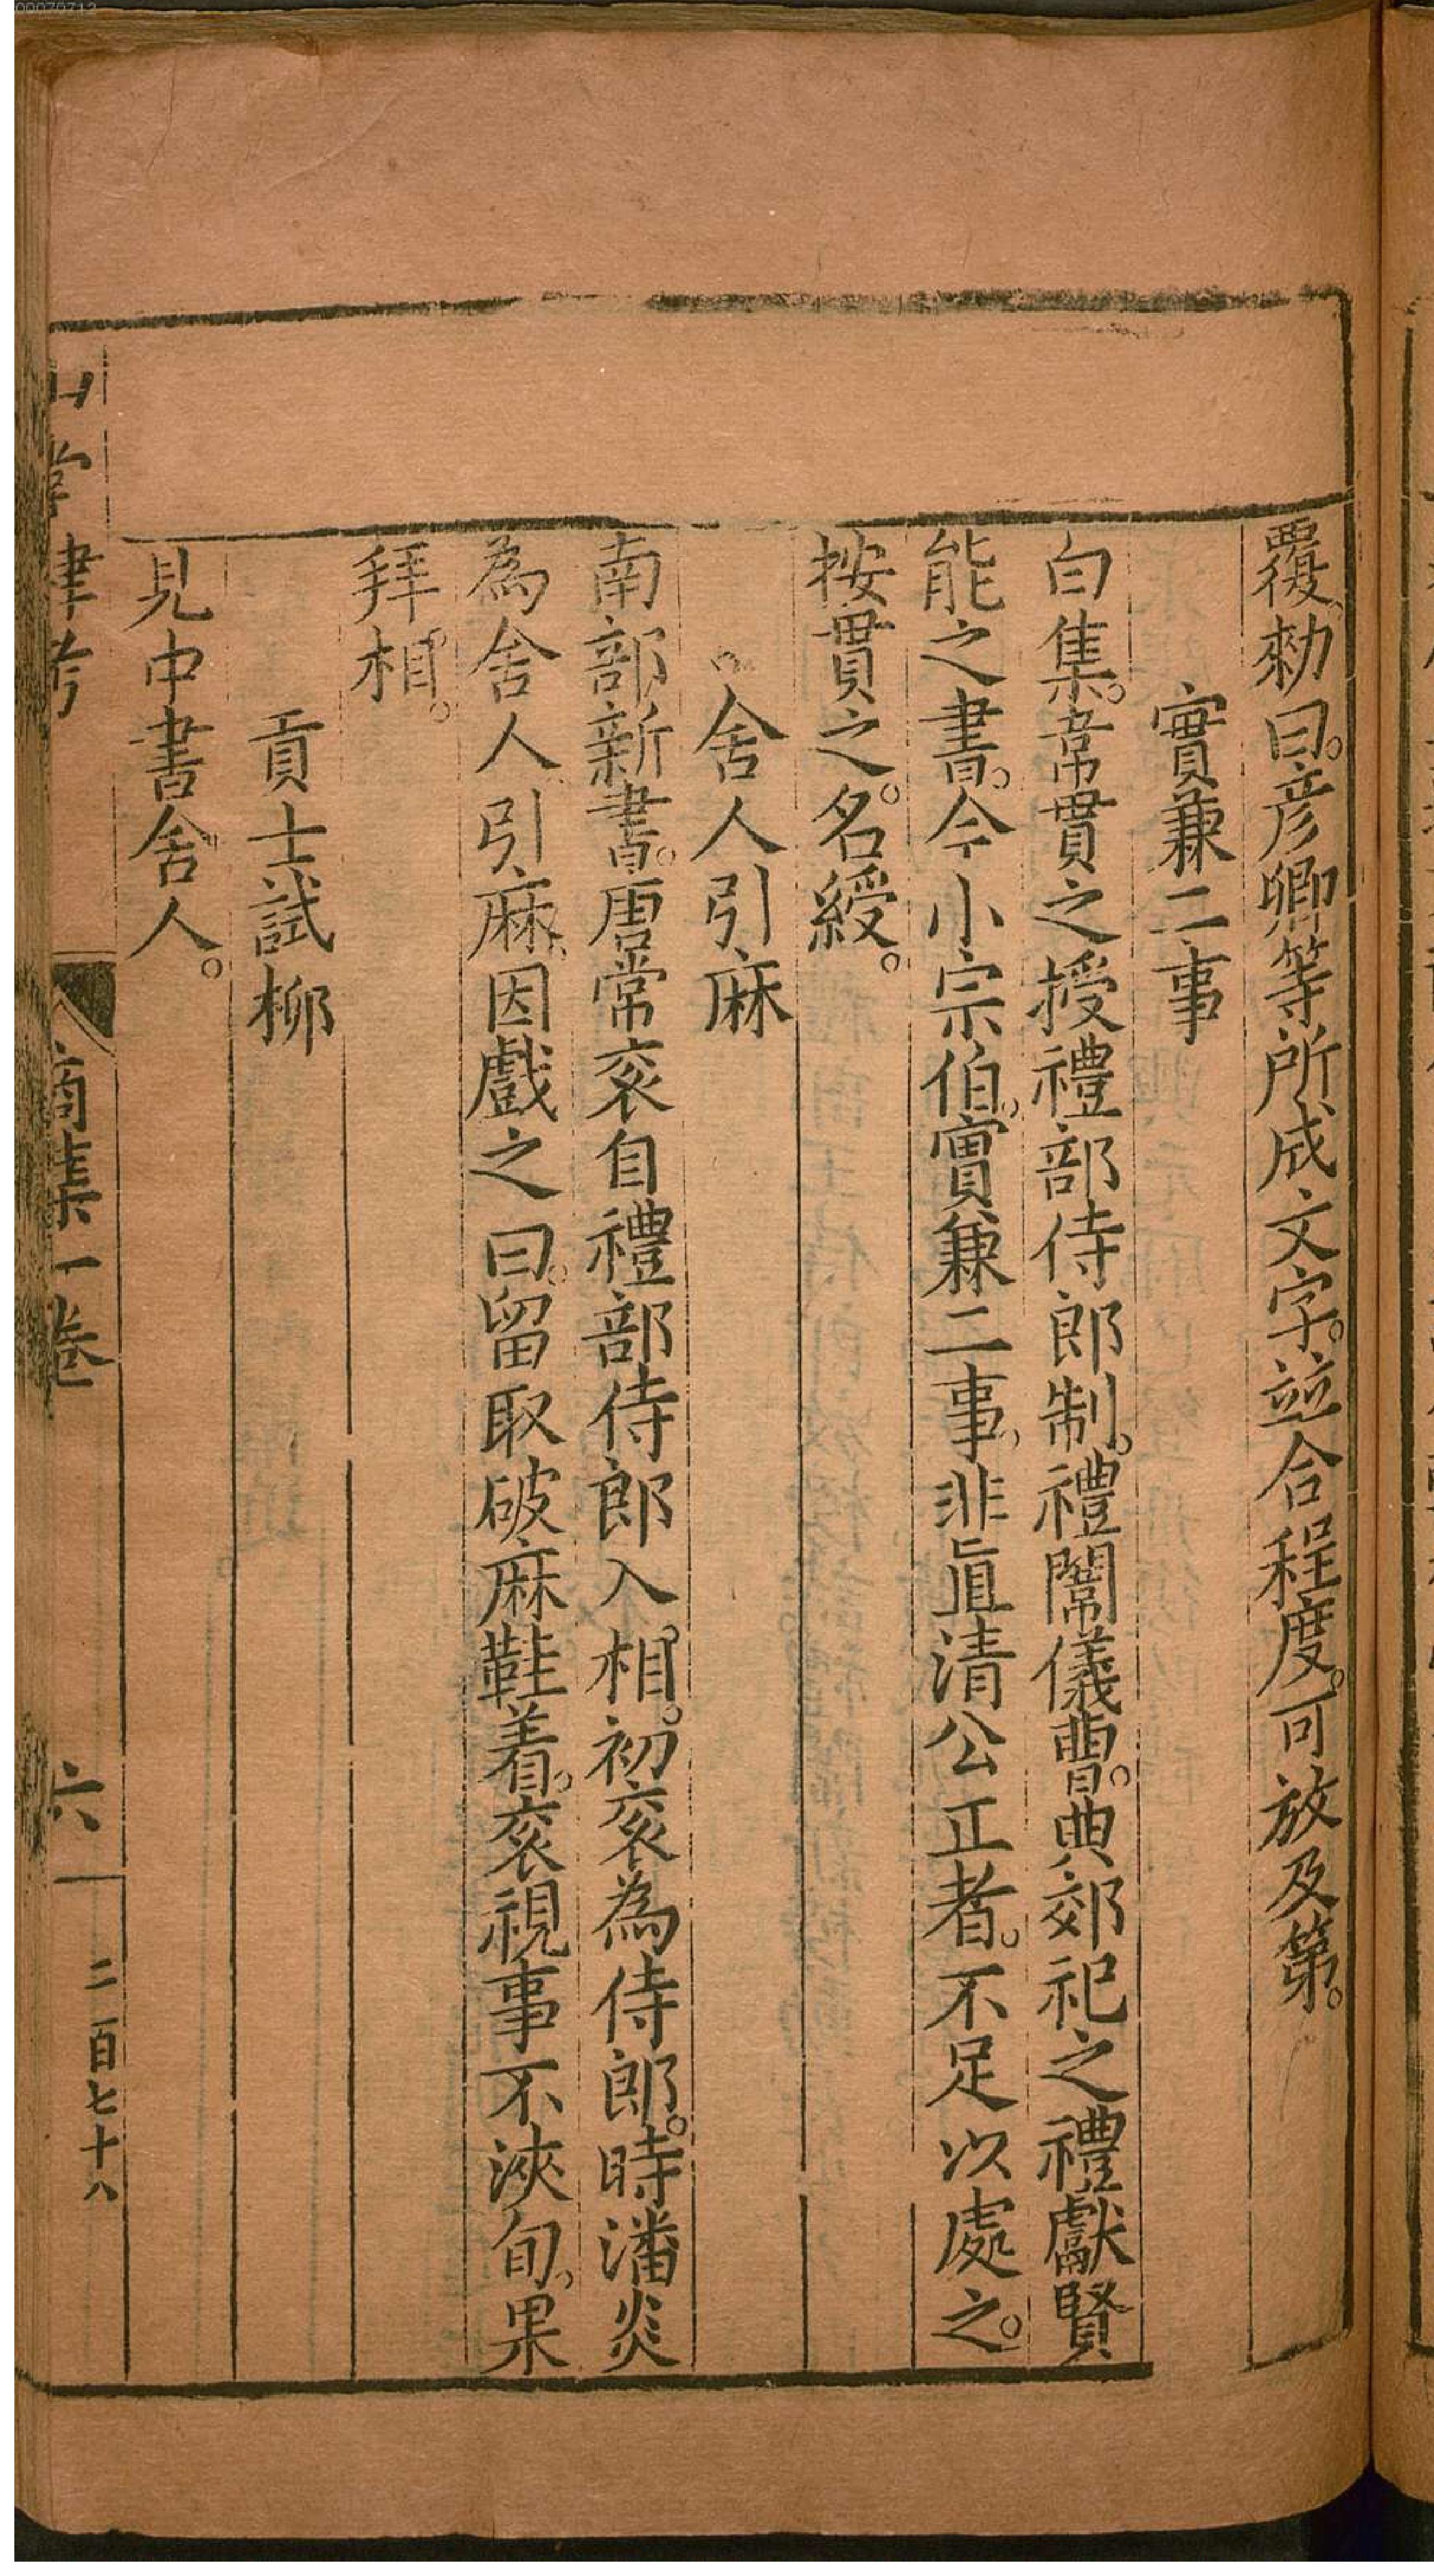 覆、勑曰。彦卿等所成文字。竝合程度。可放及第。
實兼二事
白集。韋貫之授禮部侍郎制。禮闈儀曹。典郊祀之禮獻賢
能之書。今小宗伯、實兼二事、非眞清公正者。不足以處之。
按貫之。名綬。
舍人引麻
南部新書。唐常衮自禮部侍郎入相。初衮為侍郎。時潘炎
為舍人引麻、因戲之曰。留取破麻鞋着。衮視事不浹旬、果
拜相。
貢士試柳
見中書舍人。
山堂肆考
商集一卷
六
二百七十八
00070712